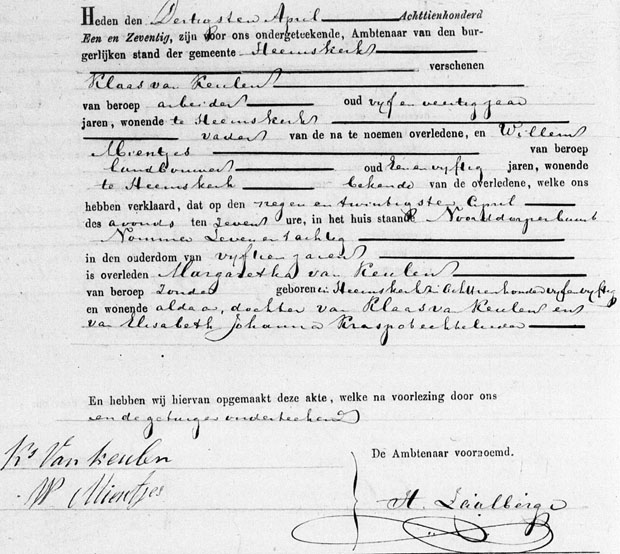 Heden den Dertigsten April Achttienhonderd
Een en Zeventig, zijn voor ons ondergeteekende, Ambtenaar van den bur-
gerlijken stand der gemeente Heemskerk
verschenen
Klaas van Keulen
van beroep arbeider oud vyf en veertig jaar
jaren, wonende te Heemskerk
vader van de na te noemen overledene, en Willem
Mientjes van beroep
landbouwer oud Een en vyftig jaren, wonende
te Heemskerk bekende van de overledene, welke ons
hebben verklaard, dat op den negen en twintigsten April
des avonds ten Zeven ure, in het huis staande Noorddorperbuurt
Nommer Zeven en tachtig
in den ouderdom van vyftien jaren
is overleden Margaretha van Keulen
van beroep Zonder geboren in Heemskerk in Achttienhonderd vyf en vyftig
en wonende aldaar, dochter van Klaas van Keulen en
van Elisabeth Johanna echtelieden
En hebben wij hiervan opgemaakt deze akte, welke na voorlezing door ons
en de getuigen onderteekend
Ks Van Keulen
W Mientjes
De Ambtenaar voornoemd.
H. Zaalberg